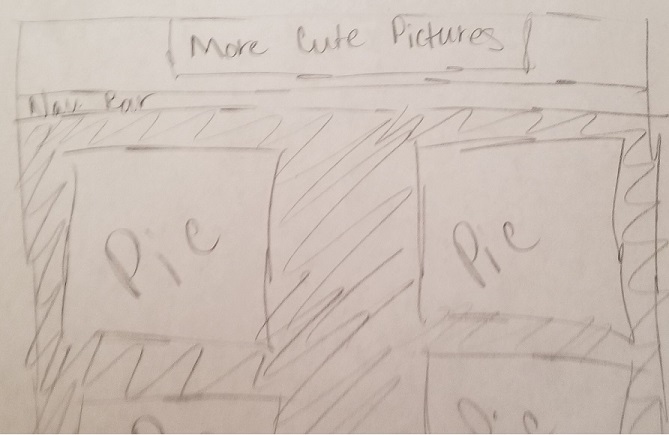 More Cute Pictures
Nav Bar
Pic Pic
Pic Pic